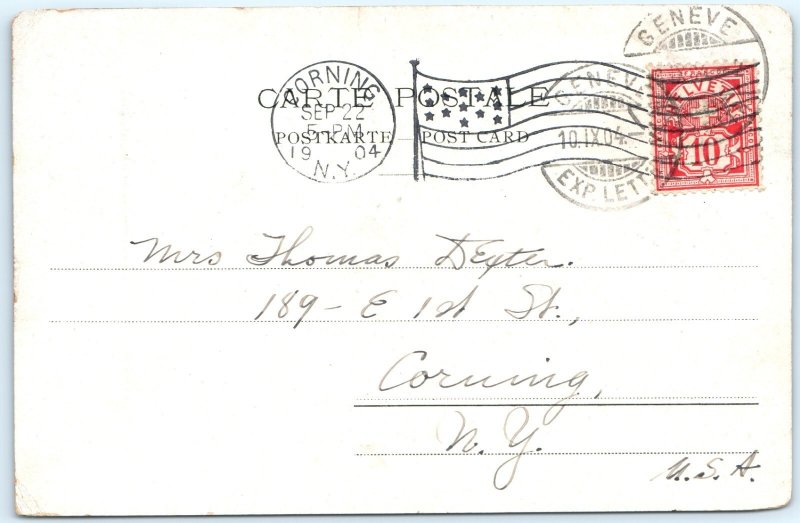 GENEVE
CORNING
SEP 22
5-PM
19 04
N.Y.
CARTE POSTALE
POSTKARTE POST CARD
GENEVE
10.IX.04.
EXP. LETT
HELVETIA
10
Mrs Thomas Dexter.
189- E 1st St.,
Corning,
N. Y.
U.S.A.